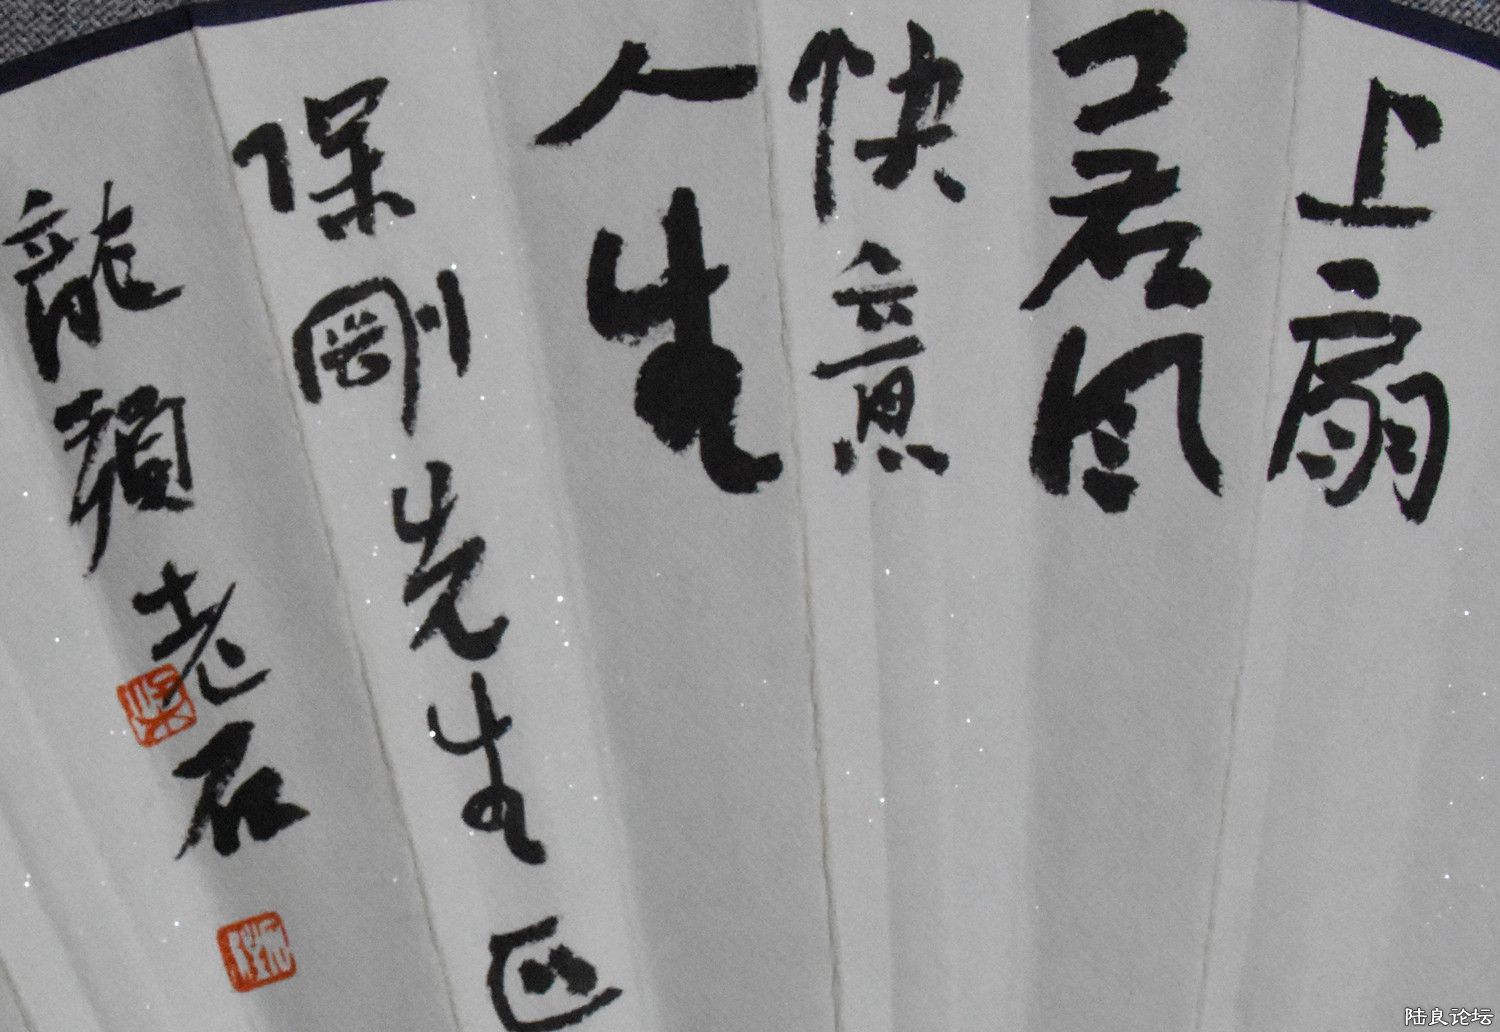 上扇
风
快意
人生
保剛先生
龍 老石
陆良论坛